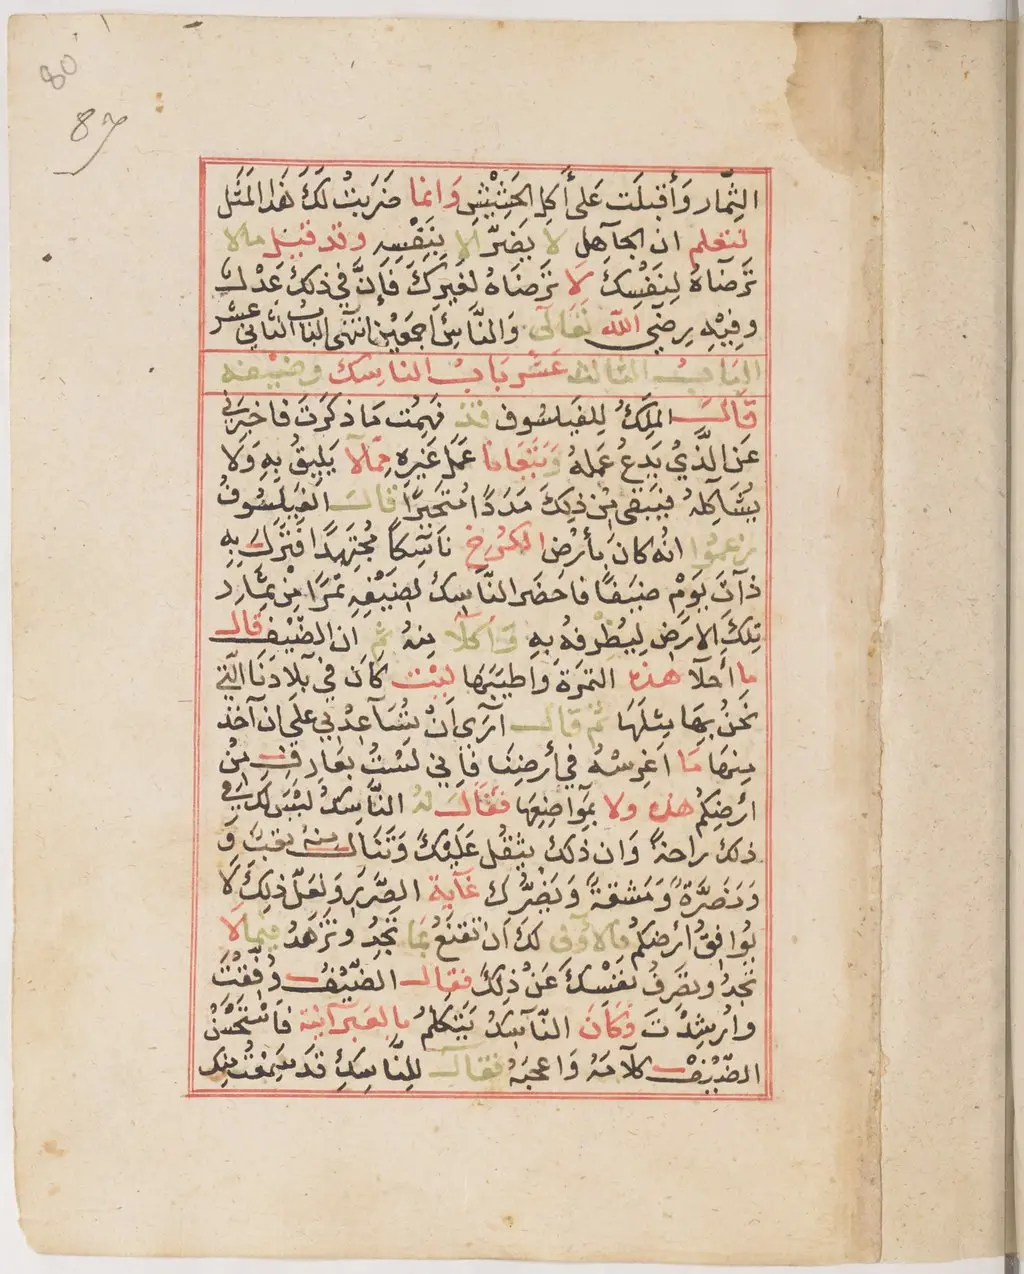 80
87
الثِّمار وَأَقبلَت عَلىَ أَكلِ الحَشِيْشِ وَانما ضَرَبتُ لَكَ هَذا المَثَل
لتعلم ان الجآهل لا يضرّ الا بنَفْسِهِ وقد قيل مالا
تَرضآهُ لِنَفْسُكَ لَا تَرضَاهُ لغيرِكَ فَإنَّ في ذلكَ عَدْلٌ
وفِيْهِ رِضَي اللّه تَعَالَى وَالنَّاسُ اجمَعِيْن انتهى البَابُ الثاني عشر
البَابُ الثالث عَشر بَابُ الناسِك وضيْفه
قَالَ المَلِكُ لِلفَيلسُوف قَدْ فهمْت مَا ذكرَتَ فاخبِرني
عَن الَّذِيْ يَدعُ عَمَلهُ وَيَتَعَاطا عَمَل غَيْرِهِ مِمّالَا يَلِيقُ بِهِ وَلَا
يُشَاكِلهُ فيَبقىَ مِن ذلِكَ مَدَدًا مُتَحَيرًا قَالَ الفَيلَسُوفُ
زعمُوا انهُ كانَ بأرْضِ الكَرْخِ نآسِكاً مُجْتَهِدًا فَنَزَلَ بهِ
ذآتَ يَوْمٍ ضَيفًا فاحضَر النَّاسِكُ لِضَيْفِهِ تمْرًا مِنْ ثِمَارِ
تِلكَ الارَضِ لِيُطْرِفهُ بِهِ وَاكلا مِنهُ ثم ان الضّيْف قال
ما أحلآ هذه التمرَةَ وَاطيَبَهَا ليْت كَانَ في بَلَادنَا الَّتِي
نحْنُ بهَا مِثلهَا ثم قالَ ارَى اَنْ تُسَآعِدُني علَى ان آخذ
مِنهَا مَا اغرِسُهُ في أرضِنَا فَاِني لَسْتُ بعَارِفٍ مِنْ
ارْضِكُم هذه ولا بمَوَاضِعِهَا فقَالَ لهُ النَّاسِكُ ليْسَ لكَ في
ذلكَ رَاحَةً وَان ذلكَ يثقُل عَلَيْكَ وَتَنَالُ مِنهُ تعَبٌ وَ
وَمَضرَّةً وَمَشقةً وَيَضُرُّكَ غَآية الضَّرَرِ وَلعَلَّ ذلِكَ لَا
يُوَافِقُ ارْضكُم فالاولى لكَ اَن تقنَعُ بمَا تَجدُ وتزْهَدُ فيمَالا
تَجدُ وتصْرِفُ نفسَكَ عَنْ ذلِكَ فقالَ الضّيْفُ وُفِّقْتَ
وارْشِدْتَ وَكَانَ النّآسِكُ يَتكَلمُ بالعِبرَآنِيَة فاسْتَحْسَنُ
الضّيْفُ كلَآمَهُ وَاعجَبَهُ فقالَ لِلنَّاسِكِ قَد سَمِعْتُ مِنكَ